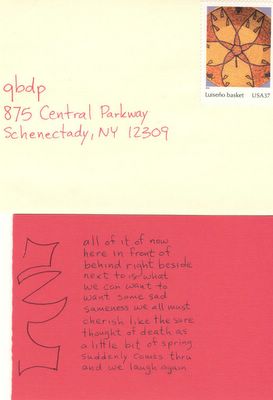 Luiseño basket USA37
qbdp
875 Central Parkway
Schenectady, NY 12309
all of it of now
here in front of
behind right beside
next to is what
we can want to
want some sad
sameness we all must
cherish like the sore
thought of death as
a little bit of spring
suddenly comes thru
and we laugh again